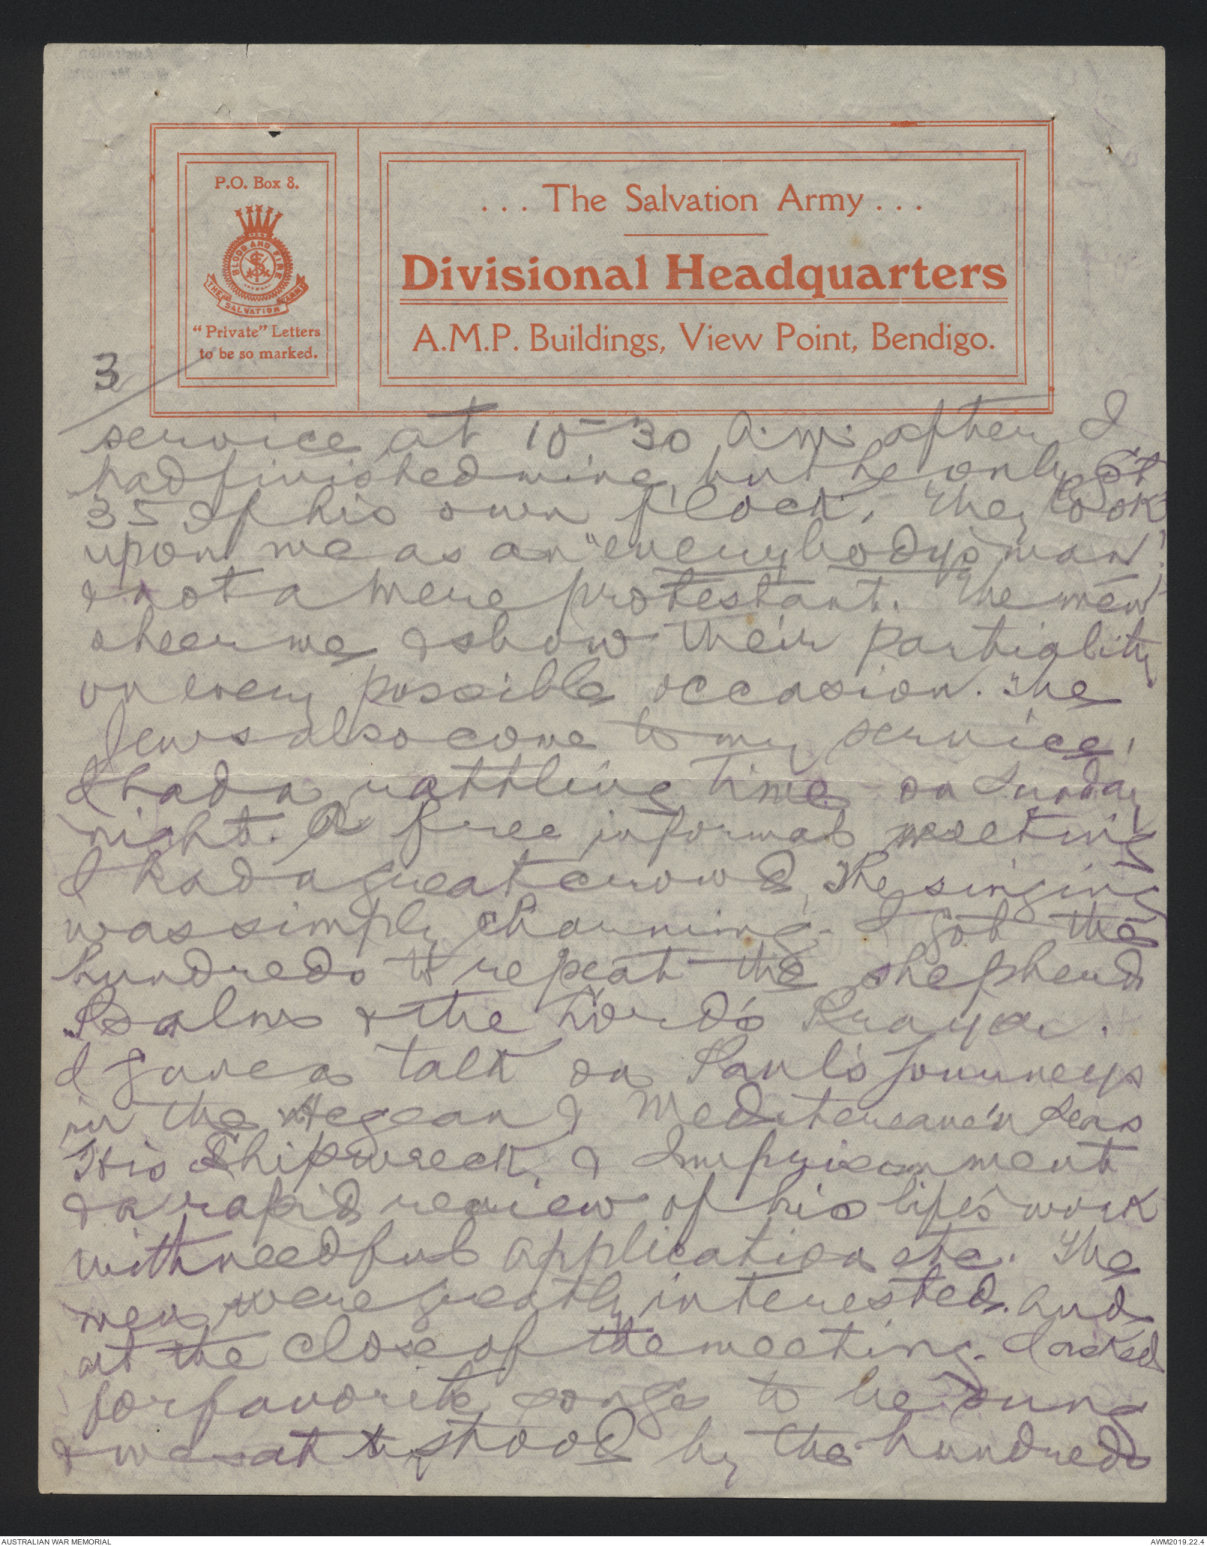 P.O. Box 8.
BLOOD AND FIRE
THE SALVATION ARMY
"Private" Letters
to be so marked.
... The Salvation Army ...
Divisional Headquarters
A.M.P. Buildings, View Point, Bendigo.
3
service at 10-30 A.m. after I
had finished mine, but he only got
35 of his own flock. They look
upon me as an "everybody's man"
& not a mere protestant. The men
cheer me & show their partiality
on every possible occasion. The
Jews also come to my service,
I had a rattling time on Sunday
night. A free informal meeting
I had a great crowd, The singing
was simply charming. I got the
hundreds to repeat the shepherd
Psalms & the Lord's Prayer.
I gave a talk on Paul's Journeys
in the Aegean & Mediterranean Seas
His Shipwreck, & Imprisonment
& a rapid review of his life's work
with needful application etc. The
men were greatly interested. and
at the close of the meeting. I asked
for favorite songs to be sung
& we sat & stood by the hundreds
AUSTRALIAN WAR MEMORIAL
AWM2019.22.4